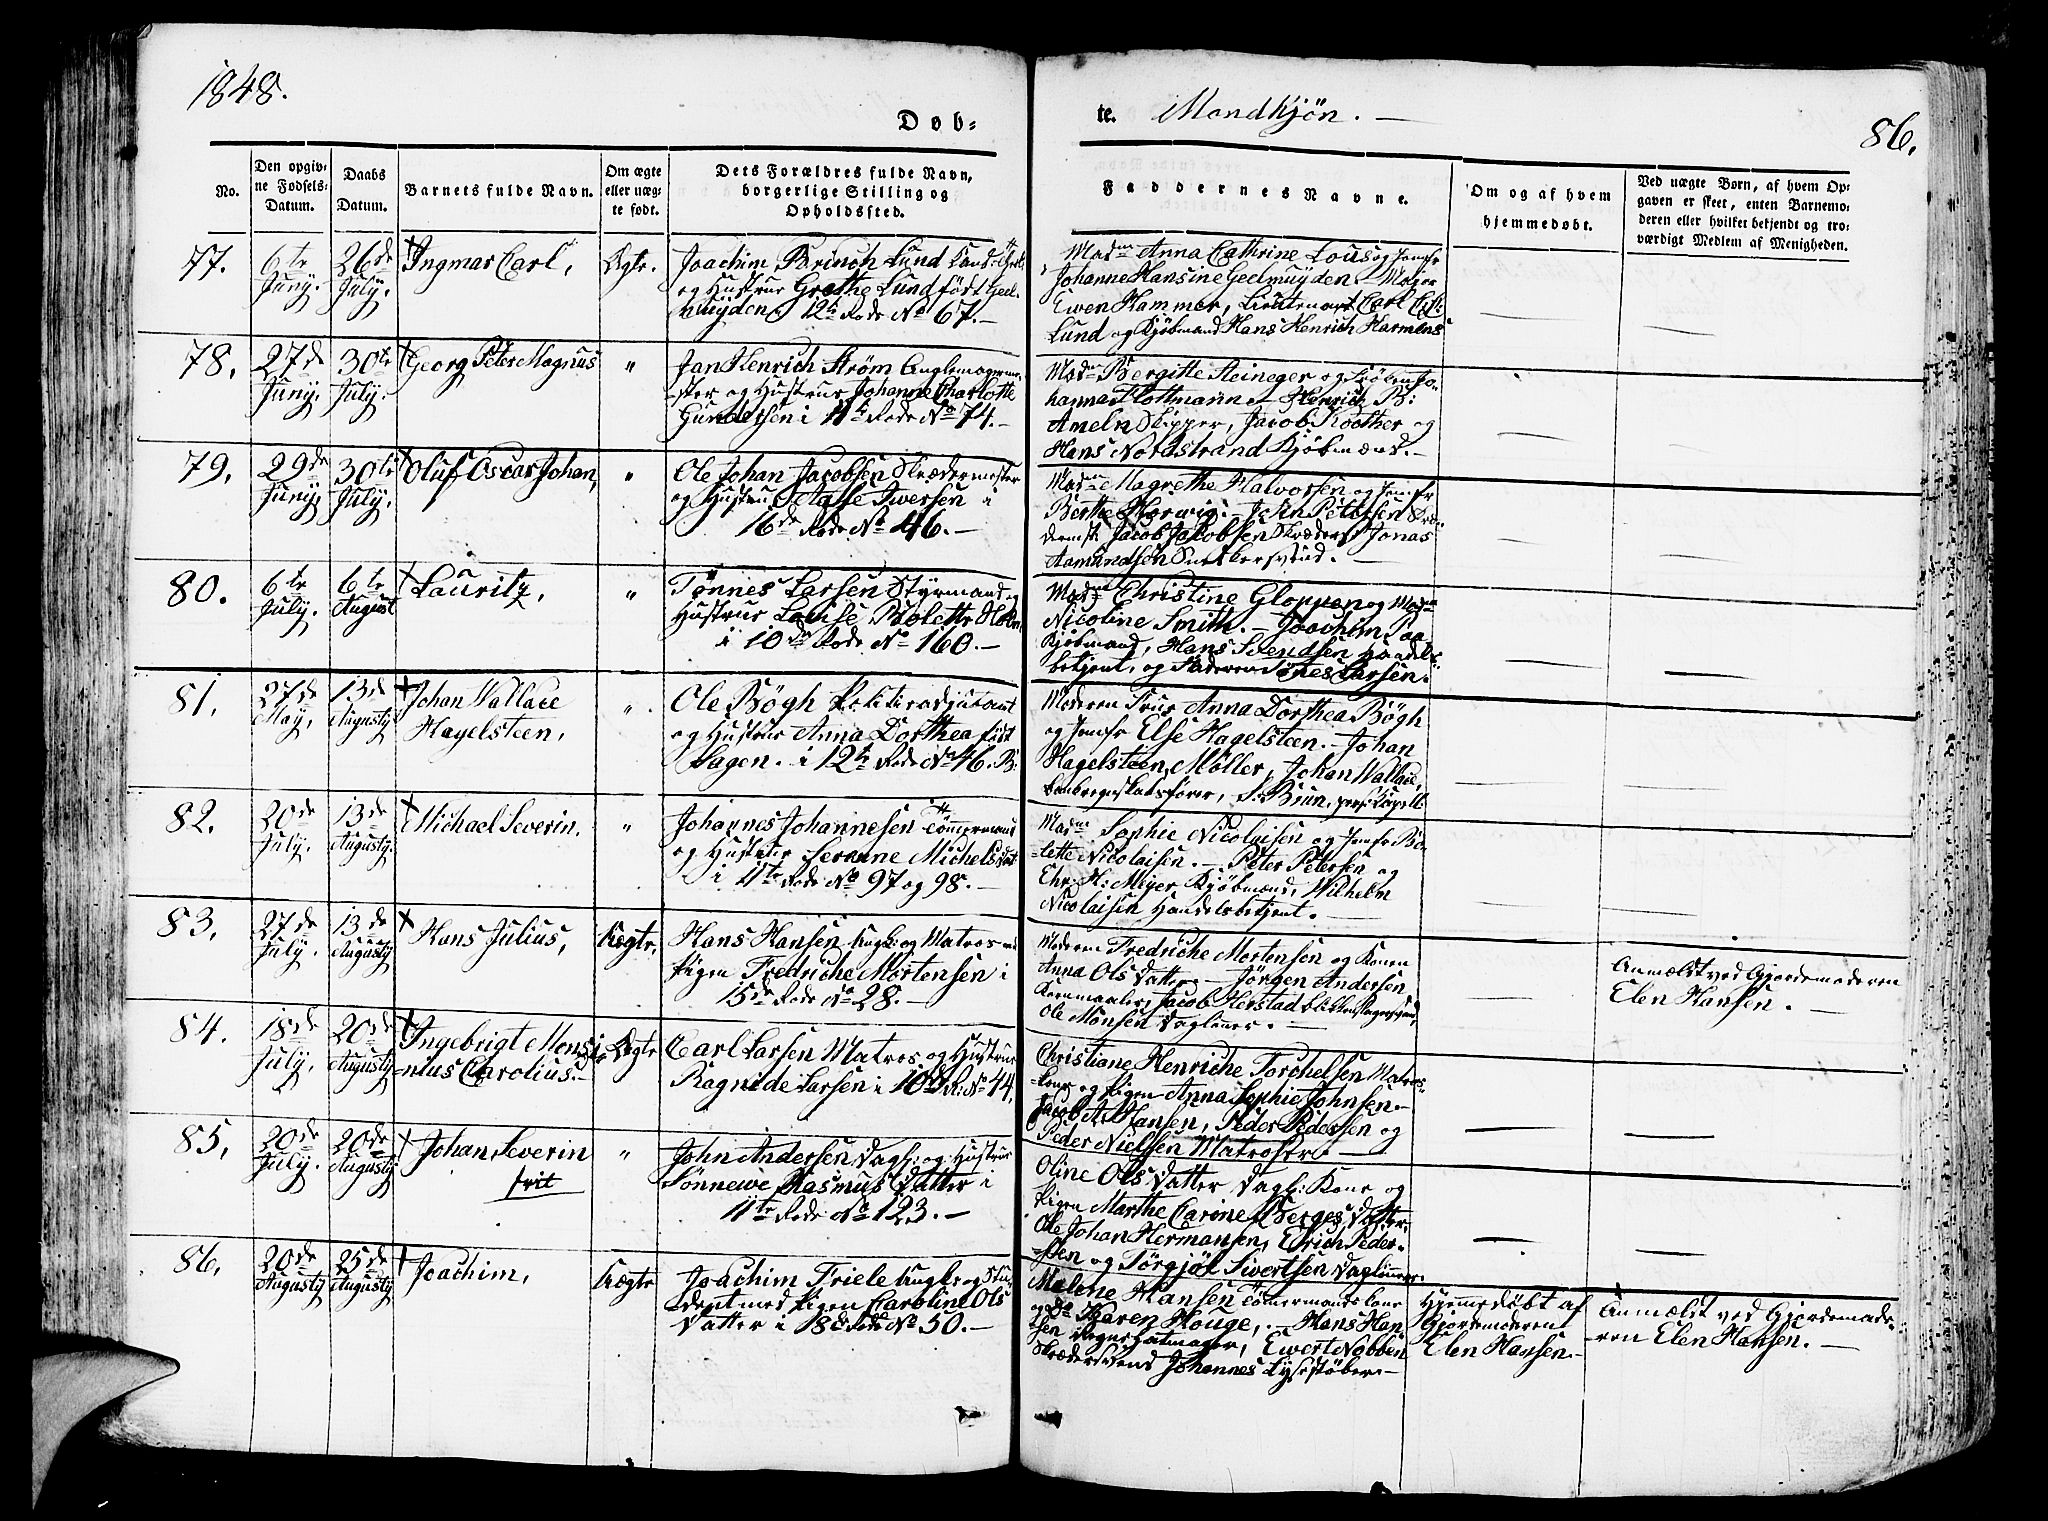 1848.
Døb-
te. Mandkjøn. —
86.
No.
Den opgiv-
ne Fødsels-
Datum.
Daabs
Datum.
Barnets fulde Navn.
Om ægte
eller uæg-
te født.
Dets Forældres fulde Navn,
borgerlige Stilling og
Opholdssted.
Faddernes Navne.
Om og af hvem
hjemmedøbt.
Ved uægte Børn, af hvem Op-
gaven er skeet, enten Barnemo-
deren eller hvilket bekjendt og tro-
værdigt Medlem af Menigheden.
77.
6te
Juny.
26de
July.
Ingmar Carl,
Ægte.
Joachim Brinch Lund
og Hustrue Grethe Lund født Geel-
muyden, 12te Rode No 67. —
Madme Anna Cathrine Lous og Jomfr
Johanne Hansine Geelmuyden — Major
Ewen Hammer, Lieutenant Carl
Lund og Kjøbmand Hans Henrich Harmens
78.
27de
Juny.
30te
July.
Georg Peter Magnus
"
Jan Henrich Strøm
-ster og Hustrue Johanne Charlotte
Gundersen i 11te Rode No 74. —
Madme Bergitte Steineger og Jo-
hanna Flottmann — Henrich B:
Ameln Skipper, Jacob Roother og
Hans Nordstrand Kjøbmænd. —
79.
29de
Juny
30te
July.
Oluf Oscar Johan,
"
Ole Johan Jacobsen Skrædermester
og Hustrue Aasse Iversen i
16de Rode No 46. —
Madme Magrethe Halvorsen og Jomfr
Berthe Herwig. — John Petersen
Jacob Jacobsen Jonas
Aamundsen Snedkersvend. —
80.
6te
July.
6te
August
Lauritz,
"
Tønnes Larsen Styrmand og
Hustrue Louise Bolette Holm
i 10de Rode No 160. —
Madme Christine Gloppen og Madm
Nicoline Smith. — Joachim
Kjøbmand, Hans Svendsen Handels-
betjent, og Faderen Tønes Larsen.
81.
27de
May,
13de
Augusty.
Johan Wallace
Hagelsteen,
".
Ole Bøgh Politieadjutant
og Hustrue Anna Dorthea født
Hagen. i 12te Rode No 46. B:
Moderen Frue Anna Dorthea Bøgh
og Jomfr Else Hagelsteen. — Johan
Hagelsteen, Møller, Johan Wallace,
S: Brun, pers: Kapell:
82.
20de
July.
13de
Augusty.
Michael Severin,
"
Johannes Johannesen Tømmermand
og Hustrue Serenne Michelsdat
i 11te Rode No 97 og 98. —
Madme Sophie Nicolaisen og Jomfr Bo-
-lette Nicolaisen. — Peter Petersen og
Chr: H: Meyer Kjøbmænd, Wilhelm
Nicolaisen Handelsbetjent. —
83.
27de
July.
13de
Augusty
Hans Julius,
Uægte.
Hans Hansen Ungk: og Matros med
Pigen Fredriche Mortensen i
15de Rode No 28. —
Moderen Fredriche Mortensen og Konen
Anna Ols Datter — Jørgen Andersen
Kornmaaler, Jacob Herstad Blikkenslagersvend,
Ole Monsen Dagleier. —
Anmeldt ved Gjordemoderen
Elen Hansen. —
84.
18de
July.
20de
Augusty
Ingebrigt Monsi-
-nius Carolius. —
Ægte
Carl Larsen Matros og Hustrue
Ragnilde Larsen i 10de R: No 44.
Christiane Henriche Torchelsen Matros-
kone og Pigen Anna Sophie Johnsen —
Jacob A: Hansen, Peder Pedersen og
Peder Nielsen Matroser. —
85,
20de
July.
20de
Augusty
Johan Severin
frit
"
John Andersen Dagl: og Hustrue
Sønnewe Rasmus Datter i
11te Rode No 123. —
Oline Ols Datter Dagl: Kone og
Pigen Marthe Carine Berges Datter,
Ole Johan Hermansen, Erich Peder-
-sen og Torgjøl Sivertsen Dagleiere.
86.
20de
Augusty
25de
Augusty
Joachim,
Uægte
Joachim Friele Ungk: og Stu-
-dent med Pigen Caroline Ols
Datter i 18de Rode No 50. —
Malene Hansen Tømermands Kone
og Do Karen Houge, — Hans Han-
sen Rebslagersvend, Ewert Nobben
Skrædersvend Johannes Lysestøber. —
Hjemmedøbt af
Gjordemoderen
Elen Hansen. —
Anmeldt ved Gjordemode-
ren Elen Hansen. —